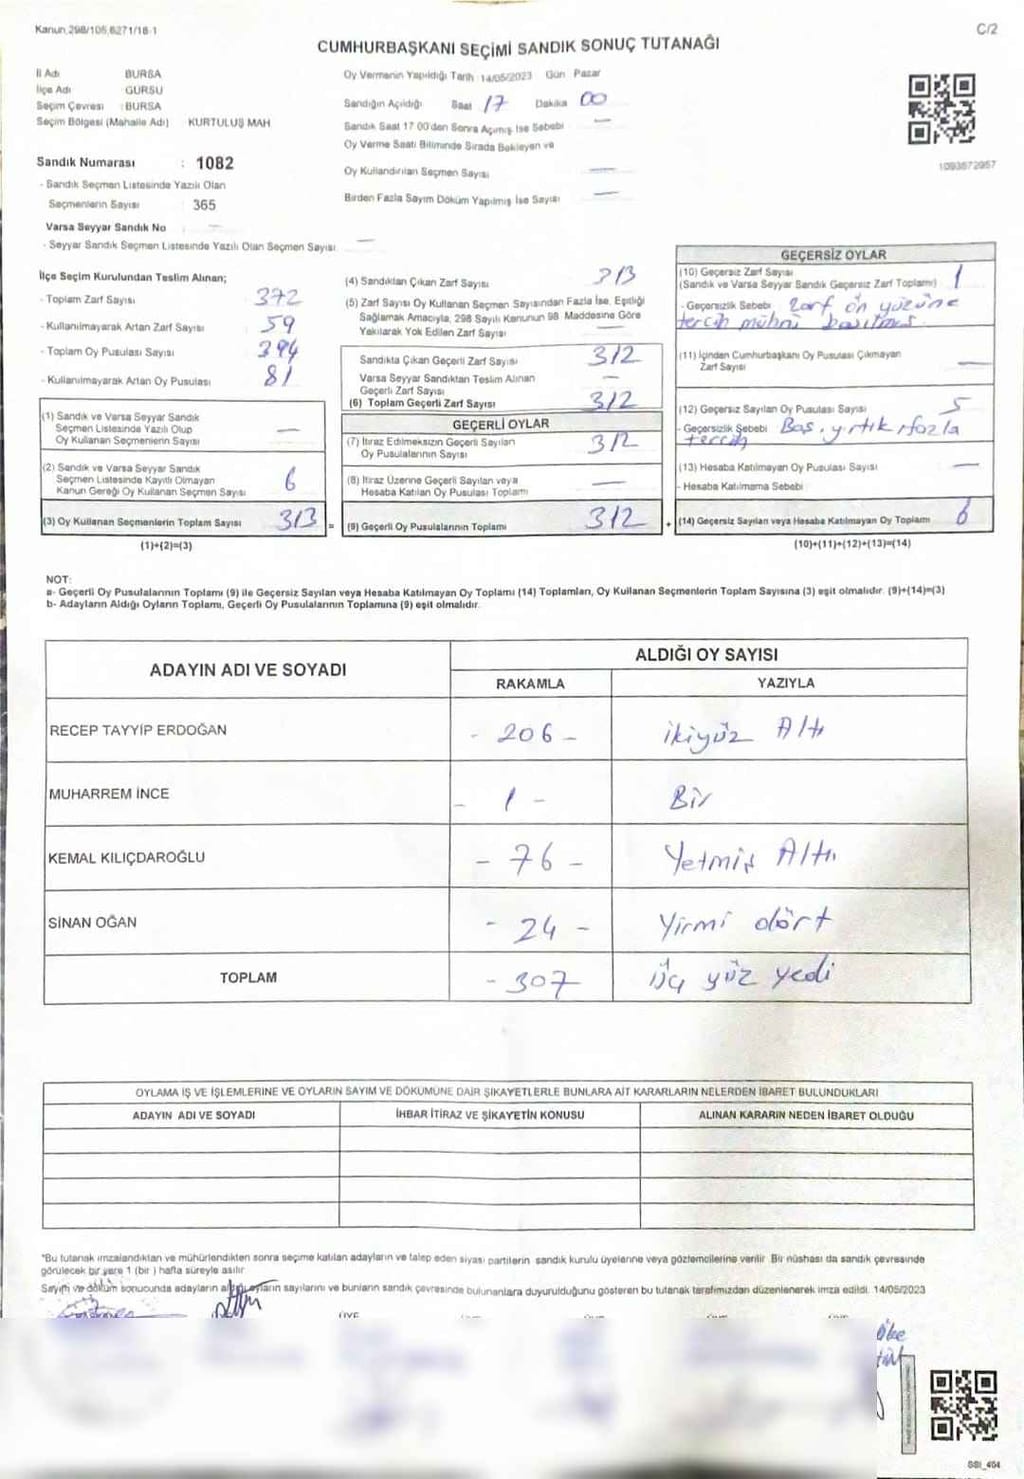 Kanun,298/105,6271/16-1
C/2
CUMHURBAŞKANI SEÇİMİ SANDIK SONUÇ TUTANAĞI
İl Adı BURSA
İlçe Adı GURSU
Seçim Çevresi : BURSA
Seçim Bölgesi (Mahalle Adı) KURTULUŞ MAH
Sandık Numarası : 1082
- Sandık Seçmen Listesinde Yazılı Olan
Seçmenlerin Sayısı : 365
Varsa Seyyar Sandık No : —
- Seyyar Sandık Seçmen Listesinde Yazılı Olan Seçmen Sayısı —
Oy Vermenin Yapıldığı Tarih :14/05/2023 Gün Pazar
Sandığın Açıldığı Saat 17 Dakika 00
Sandık Saat 17 00'den Sonra Açımış İse Sebebi —
Oy Verme Saati Bitiminde Sırada Bekleyen ve
Oy Kullandırılan Seçmen Sayısı —
Birden Fazla Sayım Döküm Yapılmış İse Sayısı —
1093672957
İlçe Seçim Kurulundan Teslim Alınan;
- Toplam Zarf Sayısı 372
- Kullanılmayarak Artan Zarf Sayısı 59
- Toplam Oy Pusulası Sayısı 394
- Kullanılmayarak Artan Oy Pusulası 81
(1) Sandık ve Varsa Seyyar Sandık
Seçmen Listesinde Yazılı Olup
Oy Kullanan Seçmenlerin Sayısı —
(2) Sandık ve Varsa Seyyar Sandık
Seçmen Listesinde Kayıtlı Olmayan
Kanun Gereği Oy Kullanan Seçmen Sayısı 6
(3) Oy Kullanan Seçmenlerin Toplam Sayısı 313 =
(1)+(2)=(3)
(4) Sandıktan Çıkan Zarf Sayısı 313
(5) Zarf Sayısı Oy Kullanan Seçmen Sayısından Fazla İse, Eşitliği
Sağlamak Amacıyla, 298 Sayılı Kanunun 98 Maddesine Göre
Yakılarak Yok Edilen Zarf Sayısı —
Sandıkta Çıkan Geçerli Zarf Sayısı 312
Varsa Seyyar Sandıktan Teslim Alınan
Geçerli Zarf Sayısı —
(6) Toplam Geçerli Zarf Sayısı 312
GEÇERLİ OYLAR
(7) İtiraz Edilmeksizin Geçerli Sayılan
Oy Pusulalarının Sayısı 312
(8) İtiraz Üzerine Geçerli Sayılan veya
Hesaba Katılan Oy Pusulası Toplamı —
(9) Geçerli Oy Pusulalarının Toplamı 312 +
GEÇERSİZ OYLAR
(10) Geçersiz Zarf Sayısı
(Sandık ve Varsa Seyyar Sandık Geçersiz Zarf Toplamı) 1
- Geçersizlik Sebebi Zarf ön yüzüne
tercih mührü basılmış
(11) İçinden Cumhurbaşkanı Oy Pusulası Çıkmayan
Zarf Sayısı —
(12) Geçersiz Sayılan Oy Pusulası Sayısı 5
- Geçersizlik Sebebi Boş, yırtık, fazla
tercih
(13) Hesaba Katılmayan Oy Pusulası Sayısı —
- Hesaba Katılmama Sebebi
(14) Geçersiz Sayılan veya Hesaba Katılmayan Oy Toplamı 6
(10)+(11)+(12)+(13)=(14)
NOT:
a- Geçerli Oy Pusulalarının Toplamı (9) ile Geçersiz Sayılan veya Hesaba Katılmayan Oy Toplamı (14) Toplamları, Oy Kullanan Seçmenlerin Toplam Sayısına (3) eşit olmalıdır. (9)+(14)=(3)
b- Adayların Aldığı Oyların Toplamı, Geçerli Oy Pusulalarının Toplamına (9) eşit olmalıdır.
ADAYIN ADI VE SOYADI
ALDIĞI OY SAYISI
RAKAMLA YAZIYLA
RECEP TAYYİP ERDOĞAN - 206 - ikiyüz Altı
MUHARREM İNCE - 1 - Bir
KEMAL KILIÇDAROĞLU - 76 - Yetmiş Altı
SİNAN OĞAN - 24 - Yirmi dört
TOPLAM - 307 üç yüz yedi
OYLAMA İŞ VE İŞLEMLERİNE VE OYLARIN SAYIM VE DÖKÜMÜNE DAİR ŞİKAYETLERLE BUNLARA AİT KARARLARIN NELERDEN İBARET BULUNDUKLARI
ADAYIN ADI VE SOYADI İHBAR İTİRAZ VE ŞİKAYETİN KONUSU ALINAN KARARIN NEDEN İBARET OLDUĞU
*Bu tutanak imzalandıktan ve mühürlendikten sonra seçime katılan adayların ve talep eden siyasi partilerin sandık kurulu üyelerine veya gözlemcilerine verilir. Bir nüshası da sandık çevresinde
görülecek bir yere 1 (bir) hafta süreyle asılır.
Sayım ve döküm sonucunda adayların aldığı oyların sayılarını ve bunların sandık çevresinde bulunanlara duyurulduğunu gösteren bu tutanak tarafımızdan düzenlenerek imza edildi. 14/05/2023
SSI_404